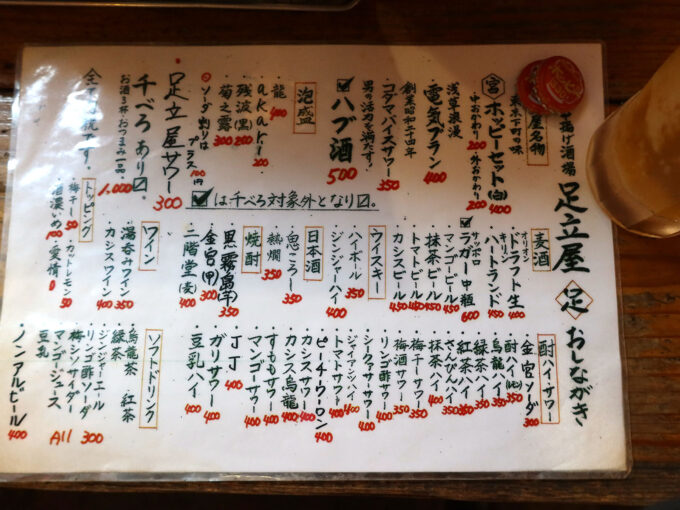 串揚げ酒場
足立屋 足 おしながき
屋名物
東京下町の味
宮 ホッピーセット(白) 400
中おかわり 200 ・外おかわり 200
浅草浪漫
電気ブラン 400
創業昭和二十四年
コダマバイスサワー 350
男の活力を満たす!
ハブ酒 500
泡盛
・龍 400
・akari 200
・残波(黒) 200
・菊之露 300
ソーダ割りはプラス100円
足立屋サワー 300
千べろあり
お酒3杯・おつまみ一品 1,000
全て税抜です。
☑は千べろ対象外となり〼。
麦酒
オリオン
・ドラフト生 400
・ハートランド 450
サッポロ
・ラガー中瓶 600
・マンゴービール 450
・抹茶ビール 450
・トマトビール 450
・カシスビール 450
ウイスキー
・ハイボール 350
・ジンジャーハイ 400
日本酒
・鬼ころし 350
・熱燗 350
焼酎
・黒霧島(芋) 350
・金宮(甲) 300
・二階堂(麦) 400
ワイン
・湯呑みワイン 350
・カシスワイン 400
トッピング
・梅干し 50 ・カットレモン 50
・泡濃いめ 100 ・愛情 0
酎ハイ・サワー
・金宮ソーダ 300
・酎ハイ 350
・烏龍ハイ 350
・緑茶ハイ 350
・紅茶ハイ 350
・さんぴんハイ 350
・抹茶ハイ 400
・梅干サワー 350
・梅酒サワー 350
・リンゴ酢サワー 400
・シークァーサーサワー 400
・ジャイアンツハイ 400
・トマトサワー 400
・ピーチウーロン 400
・カシスサワー 400
・カシス烏龍 400
・すももサワー 400
・マンゴーサワー 400
・JJ 400
・ガリサワー 400
・豆乳ハイ 400
ソフトドリンク
・烏龍茶 紅茶
・緑茶
・ジンジャーエール
・リンゴ酢ソーダ
・梅シソサイダー
・マンゴージュース
・豆乳
All 300
・ノンアルビール 400